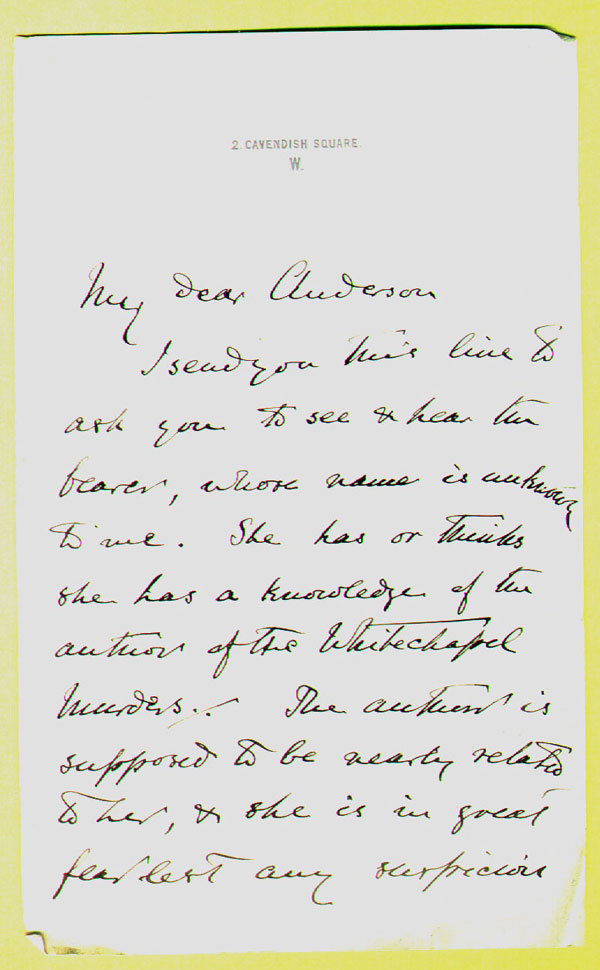 2. CAVENDISH SQUARE.
W.
My dear Anderson
I send you this line to
ask you to see & hear the
bearer, whose name is unknown
to me. She has or thinks
she has a knowledge of the
author of the Whitechapel
Murders. The author is
supposed to be nearly related
to her, & she is in great
fear lest any suspicion